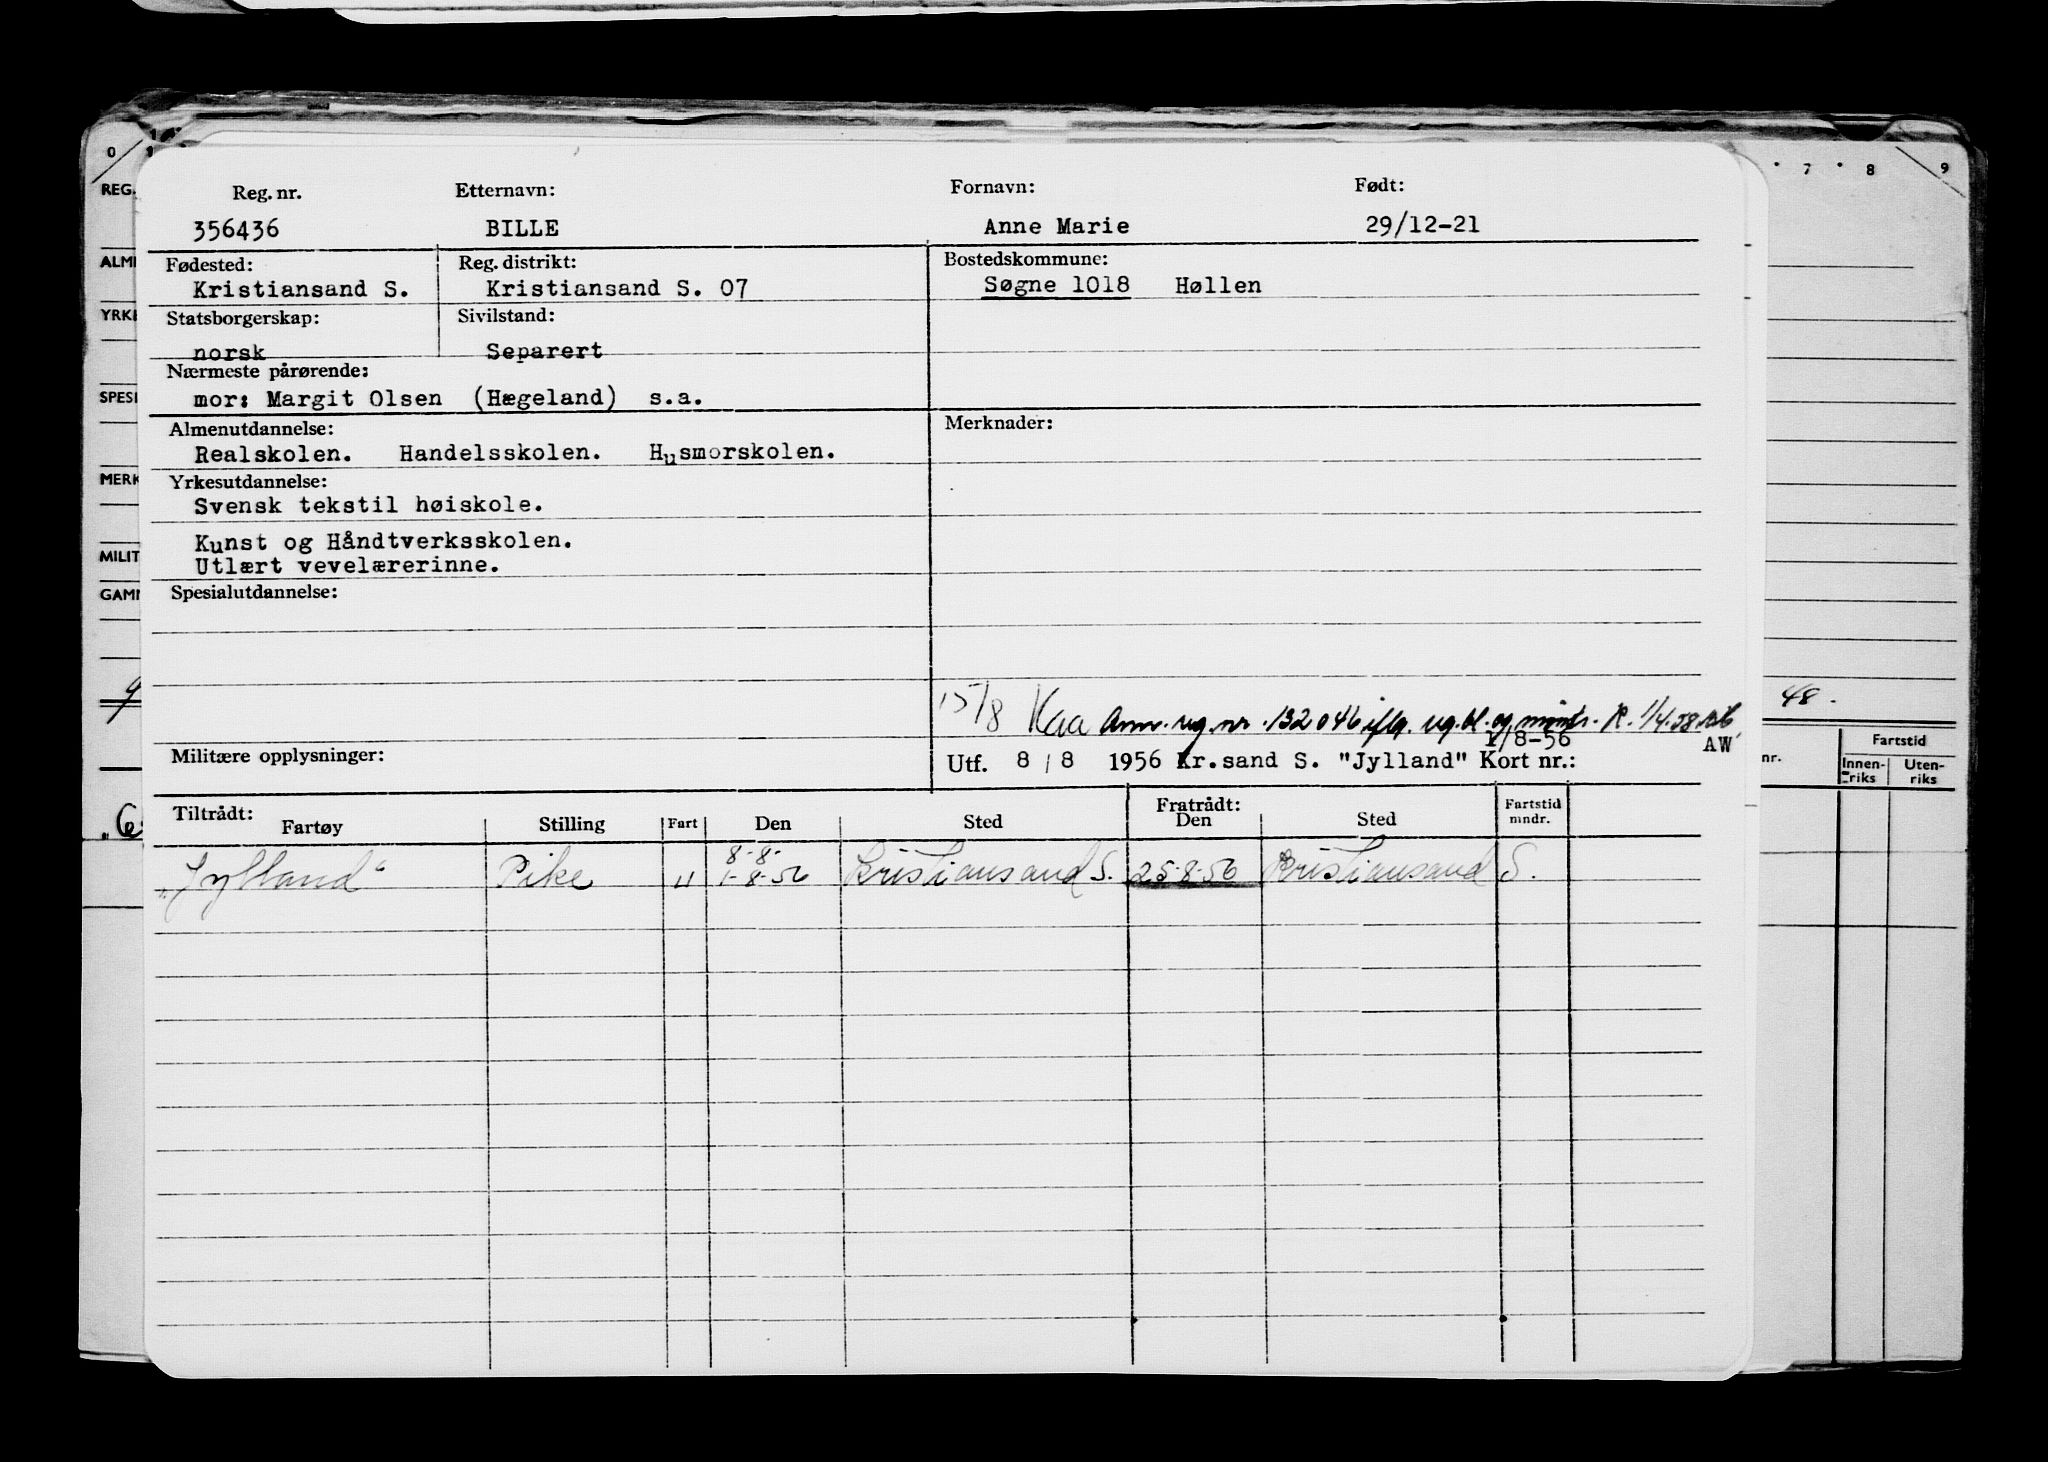 0 1 7 8 9
Reg. nr. Etternavn: Fornavn: Født:
356436 BILLE Anne Marie 29/12-21
Fødested: Reg. distrikt: Bostedskommune:
Kristiansand S. Kristiansand S. 07 Søgne 1018 Høllen
Statsborgerskap: Sivilstand:
norsk Separert
Nærmeste pårørende:
mor: Margit Olsen (Hægeland) s.a.
Almenutdannelse: Merknader:
Realskolen. Handelsskolen. Husmorskolen.
Yrkesutdannelse:
Svensk tekstil høiskole.
Kunst og Håndtverksskolen.
Utlært vevelærerinne.
Spesialutdannelse:
15/8 Kaa Ann. reg. nr. 132046 iflg. og R. 1/4.58
1/8-56 AW
Militære opplysninger: Utf. 8/8 1956 Kr.sand S. "Jylland" Kort nr.:
Tiltrådt: Fratrådt:
Fartøy Stilling Fart Den Sted Den Sted Fartstid mndr.
8-8-
"Jylland" Pike U 1-8-56 Kristiansand S. 25-8-56 Kristiansand S.
REG.
ALM
YRKE
SPESI
MERK
MILIT
GAM
48.
nr. Fartstid
Innen-riks Uten-riks